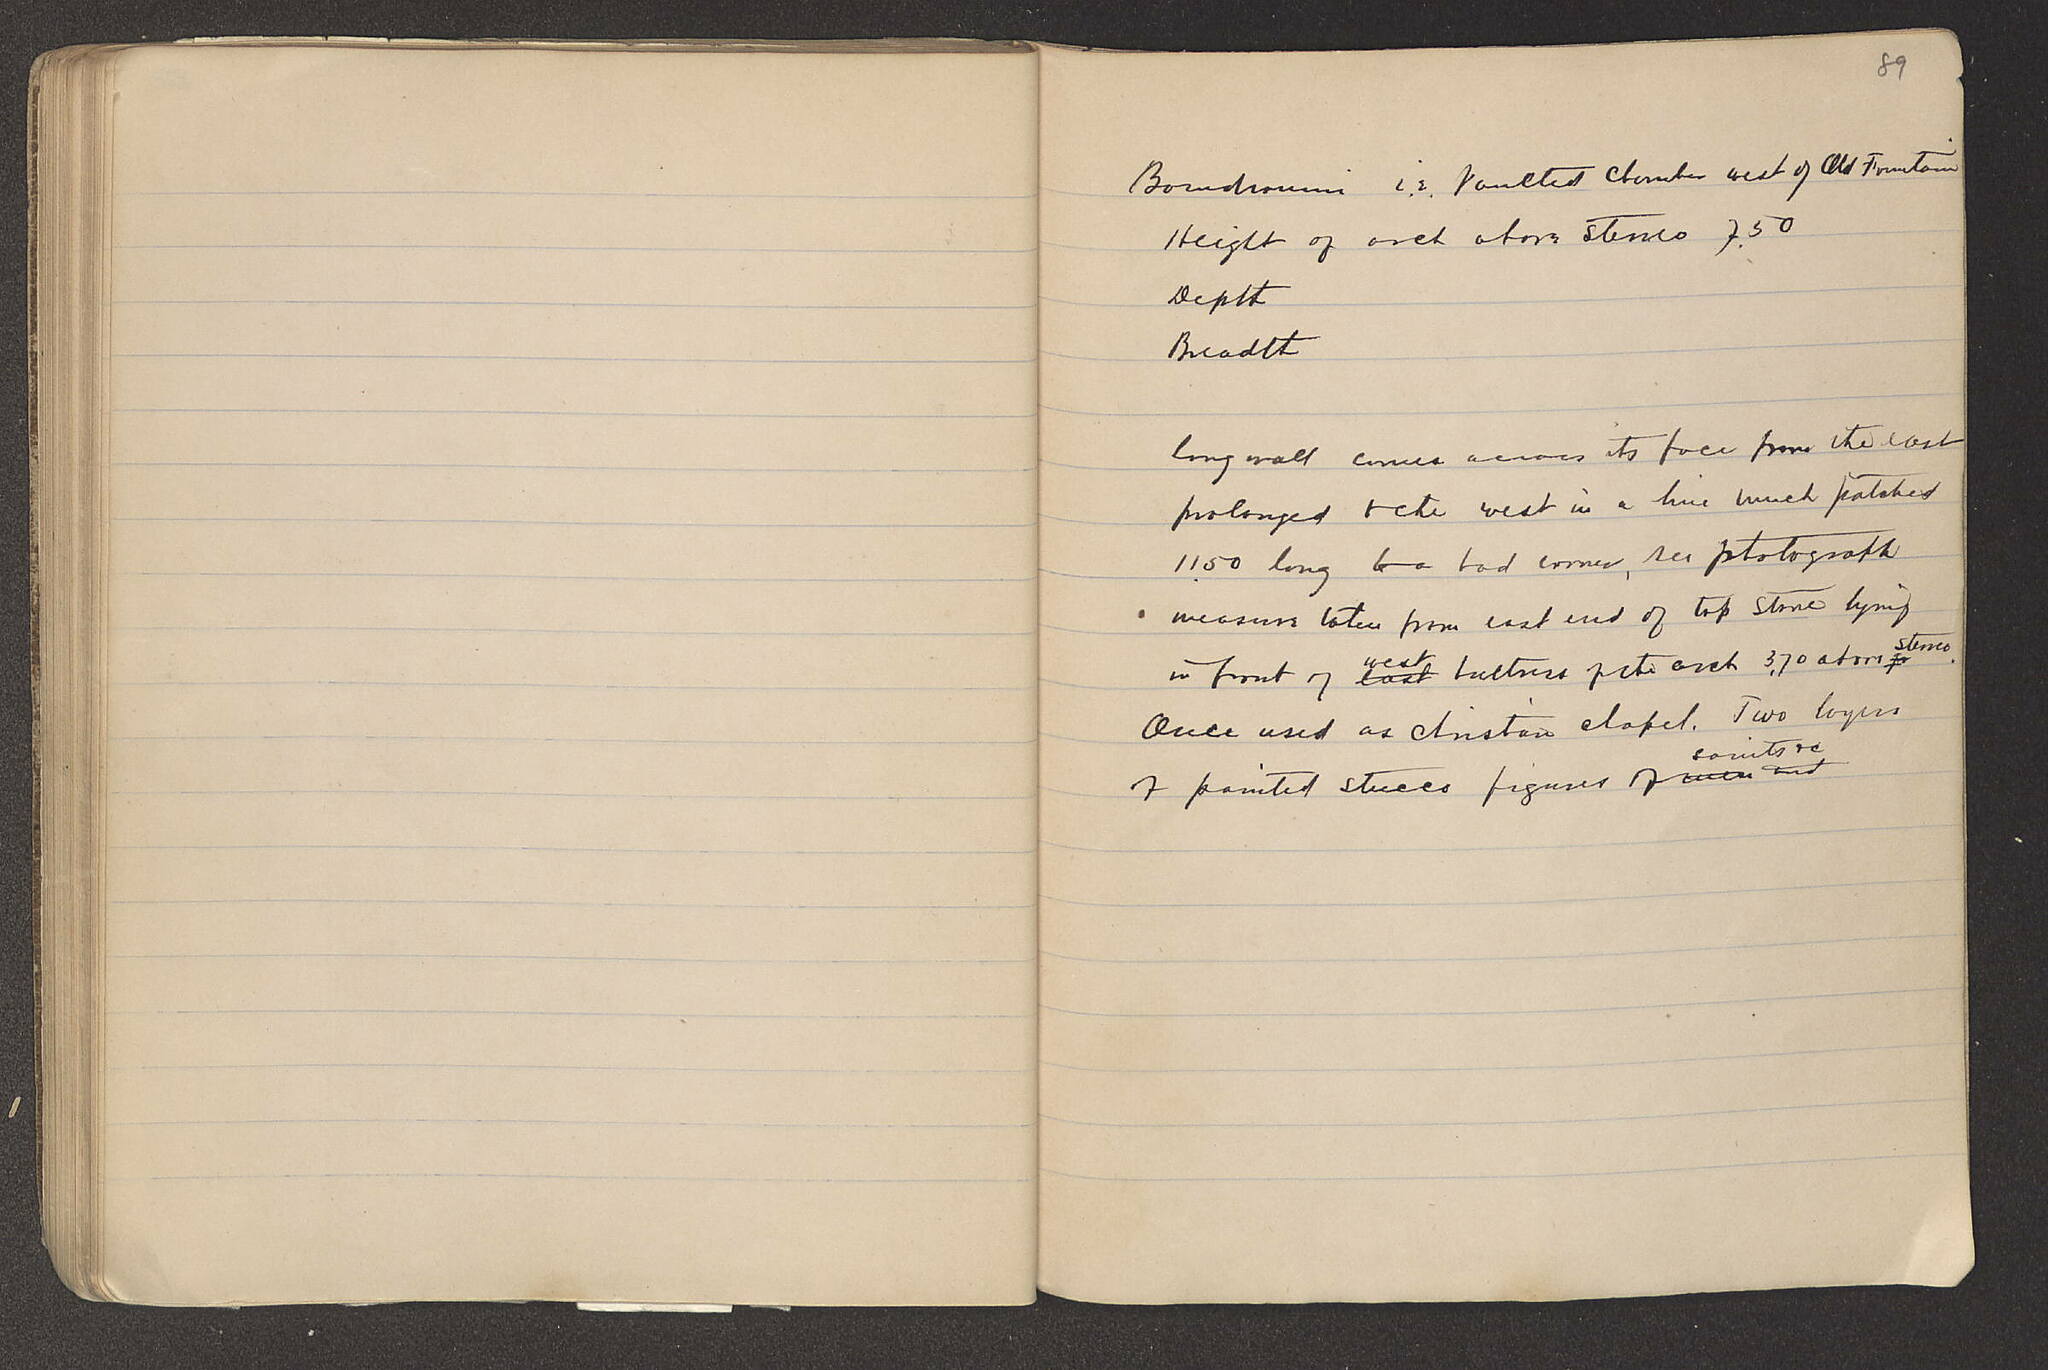 89
Boudroumi i.e. Vaulted Chamber west of Old Fountain
Height of arch above stereo 7.50
Depth
Breadth
long wall comes across its face from the east
prolonged to the west in a line much patched
11.50 long to a bad corner, see photograph
measure taken from east end of top stone lying
in front of east west buttress of the arch 3.70 above stereo.
Once used as christian chapel. Two layers
of painted stucco figures of men and saints &c